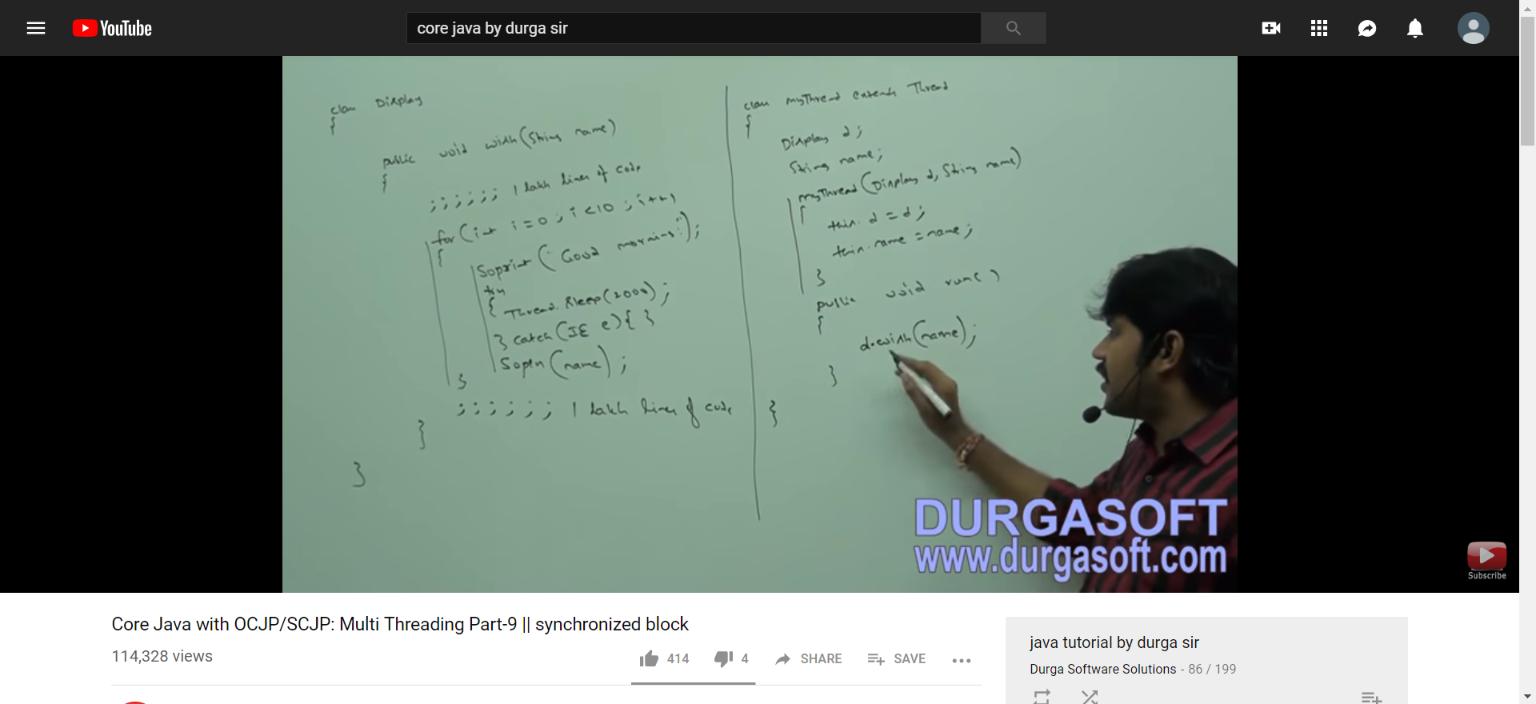 YouTube
core java by durga sir
class Display
{
public void wish(String name)
{
;;;;;; 1 lakh lines of code
for(int i=0; i<10; i++)
{
Soprint("Good morning:");
try
{
Thread.sleep(2000);
} catch(IE e){ }
Sopln(name);
}
;;;;;; 1 lakh lines of code
}
}
class myThread extends Thread
{
Display d;
String name;
myThread(Display d, String name)
{
this.d = d;
this.name = name;
}
public void run()
{
d.wish(name);
}
}
DURGASOFT
www.durgasoft.com
Subscribe
Core Java with OCJP/SCJP: Multi Threading Part-9 || synchronized block
114,328 views
414
4
SHARE
SAVE
java tutorial by durga sir
Durga Software Solutions - 86 / 199